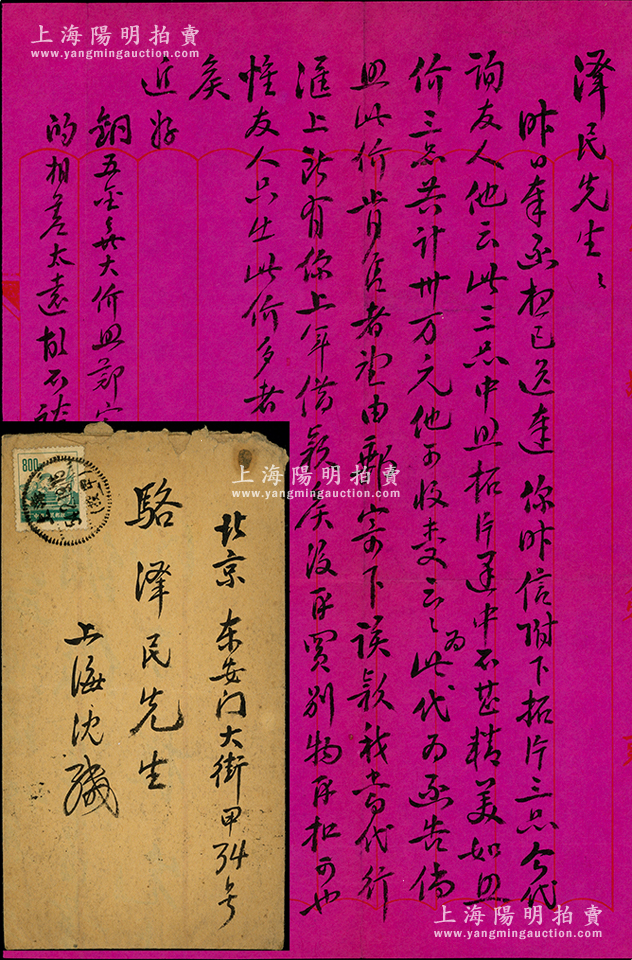 澤民先生：
昨日奉函想已送達 你昨信附下拓片三只今代
詢友人他云此三只中照拓片選中不甚精美如照
价三只共计卅万元他可收購云：此代为函告倘
照此价肯售者望由郵寄下该款我当代行
滙上所有你上年借款矣後再買别物再扣可也
惟友人只出此价多者
矣
近好
銅五金 大价照鄭
的相差太遠故不
北京东安门大街甲34号
駱澤民先生
上海沈
800
上海陽明拍賣
www.yangmingauction.com
上海陽明拍賣
www.yangmingauction.com
上海陽明拍賣
www.yangmingauction.com